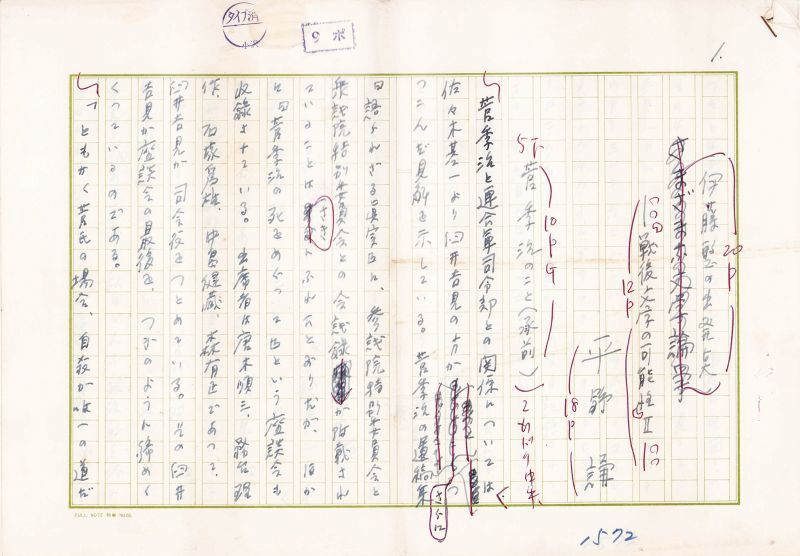 1.
タイプ済
小沢
9ポ
伊藤整の出発点
20P
さまざまな文学論争
戦後文学の可能性Ⅱ
12P
平野謙
18P
菅季治のこと(承前)
10P G
5下
2行ドリ中央
菅季治と連合軍司令部との関係については
佐々木基一より臼井吉見の方が
つっこんだ見解を示している。菅季治の遺稿集
さらに
『語られざる真実』は、参議院特別委員会と
衆議院特別委員会との会議録が附載され
ていることは さき にふれたとおりだが、ほか
に『菅季治の死をめぐって』という座談会も
収録されている。出席者は唐木順三、務台理
作、石塚為雄、中島健蔵、森有正であって、
臼井吉見が司会役をつとめている。その臼井
吉見が座談会の最後を、つぎのように締めく
くっているのである。
「ともかく菅氏の場合、自殺が唯一の道だ
1572
FULL NOTE 特撰 No.85